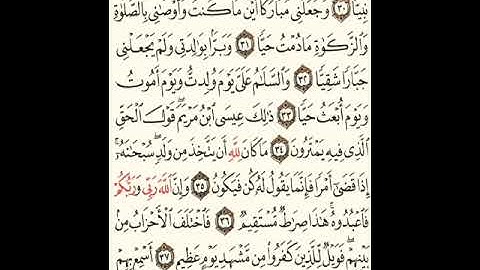 نَبِيًّا ﴿٣٠﴾ وَجَعَلَنِى مُبَارَكًا أَيْنَ مَا كُنتُ وَأَوْصَٰنِى بِٱلصَّلَوٰةِ
وَٱلزَّكَوٰةِ مَا دُمْتُ حَيًّا ﴿٣١﴾ وَبَرًّۢا بِوَٰلِدَتِى وَلَمْ يَجْعَلْنِى
جَبَّارًا شَقِيًّا ﴿٣٢﴾ وَٱلسَّلَٰمُ عَلَىَّ يَوْمَ وُلِدتُّ وَيَوْمَ أَمُوتُ
وَيَوْمَ أُبْعَثُ حَيًّا ﴿٣٣﴾ ذَٰلِكَ عِيسَى ٱبْنُ مَرْيَمَ ۚ قَوْلَ ٱلْحَقِّ
ٱلَّذِى فِيهِ يَمْتَرُونَ ﴿٣٤﴾ مَا كَانَ لِلَّهِ أَن يَتَّخِذَ مِن وَلَدٍ ۖ سُبْحَٰنَهُۥٓ ۚ
إِذَا قَضَىٰٓ أَمْرًا فَإِنَّمَا يَقُولُ لَهُۥ كُن فَيَكُونُ ﴿٣٥﴾ وَإِنَّ ٱللَّهَ رَبِّى وَرَبُّكُمْ
فَٱعْبُدُوهُ ۚ هَٰذَا صِرَٰطٌ مُّسْتَقِيمٌ ﴿٣٦﴾ فَٱخْتَلَفَ ٱلْأَحْزَابُ مِنۢ
بَيْنِهِمْ ۖ فَوَيْلٌ لِّلَّذِينَ كَفَرُوا۟ مِن مَّشْهَدِ يَوْمٍ عَظِيمٍ ﴿٣٧﴾ أَسْمِعْ بِهِمْ